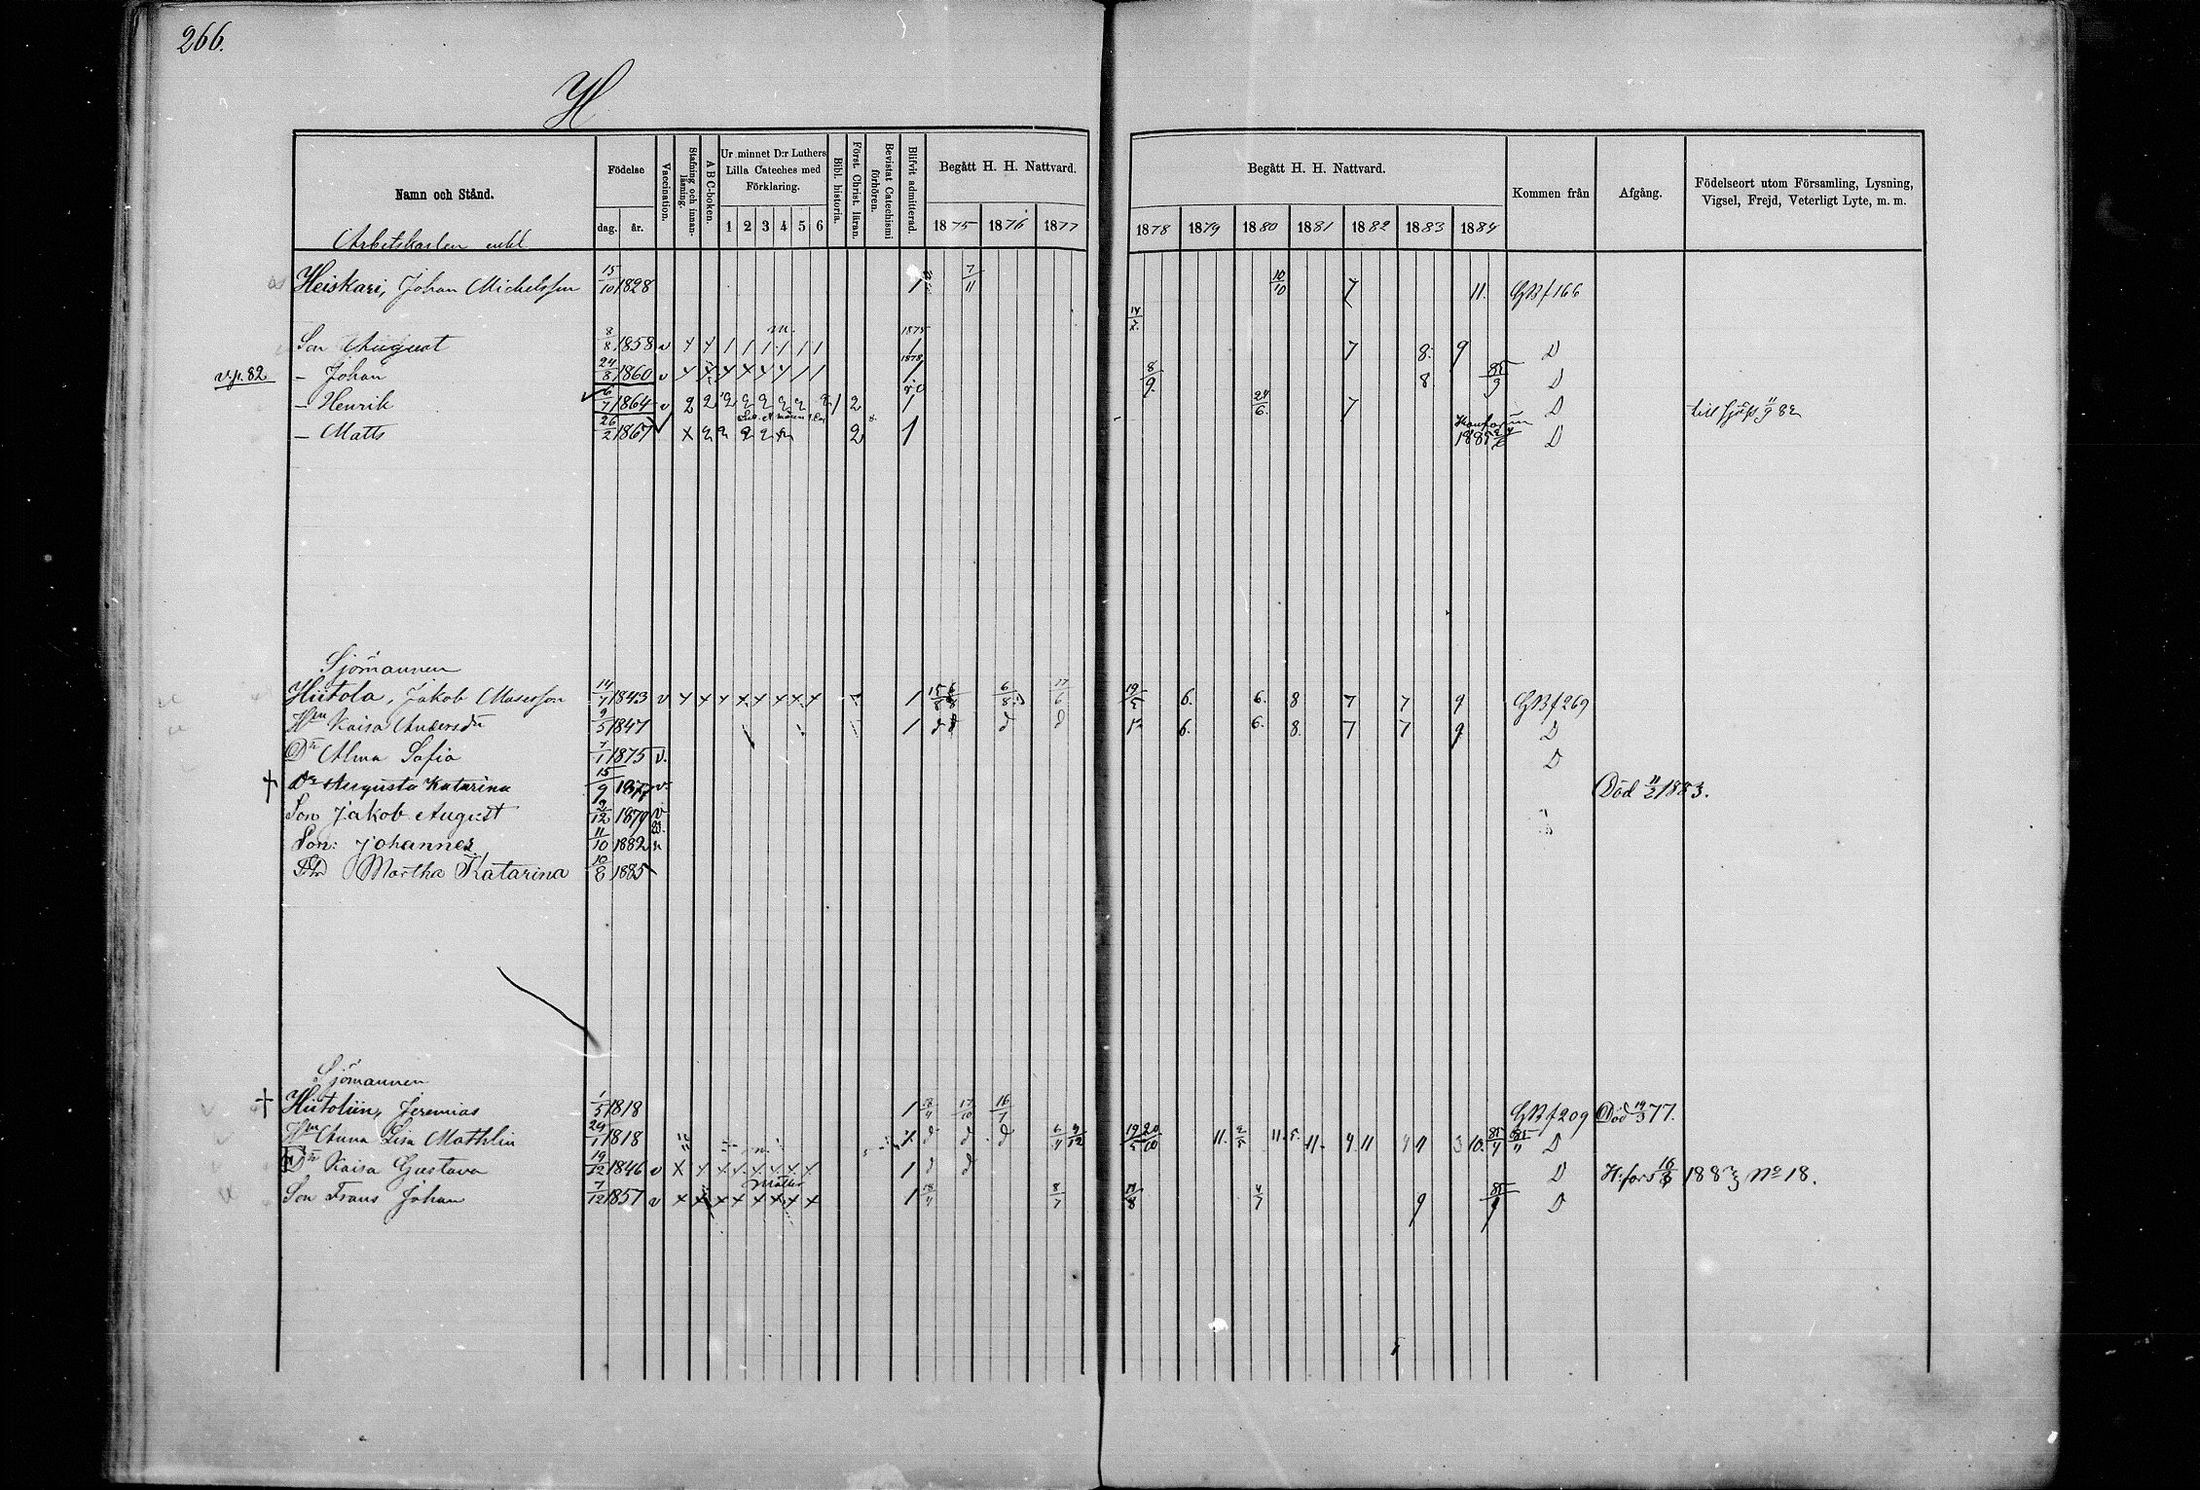 266.
H
Namn och Stånd.
Födelse
dag. år.
Vaccination.
Stafning och innanläsning.
ABC-boken.
Ur minnet D:r Luthers Lilla Cateches med Förklaring.
1 2 3 4 5 6
Bibl. historia.
Först. Christ. läran.
Bevistat Catechismi förhören.
Blifvit admitterad.
Begått H. H. Nattvard.
1875 1876 1877
Begått H. H. Nattvard.
1878 1879 1880 1881 1882 1883 1884
Kommen från
Afgång.
Födelseort utom Församling, Lysning, Vigsel, Frejd, Veterligt Lyte, m. m.
Arbetskarlen enkl
Heiskari, Johan Michelsson 15/10 1828 1 7/11 10/10 7 11. GBf 166
14/7
Son August 8/8 1858 v 1875 1 7 8. 9 D
v.p. 82 – Johan 24/8 1860 v 1878 1 8/9 8 85/9 D
– Henrik 6/7 1864 v 2 2 2 2 2 2 2 2 1 2 1 24/6 7 D till sjöss 11/9 82
– Matts 26/2 1867 x 2 2 2 2 2 1 1885 D
Sjömannen
Hiitola, Jakob Mosesson 14/7 1843 v 1 6/8 17/6 19/5 6. 6. 8 7 7 9 GBf 269
Hu Kaisa Andersdr 9/5 1847 1 d d d d 12 6. 6. 8. 7 7 9 D
Dr Alma Sofia 7/1 1875 v. D
† Dr Augusta Katarina 15/9 1877 v. Död 11/2 1883.
Son Jakob August 9/12 1879 v
Son: Johannes 11/10 1882 v
Dtr Martha Katarina 10/8 1885
Sjömannen
† Hiitolin, Jeremias 1/5 1818 1 18/4 17/10 16/7 GBf 209 Död 19/3 77.
Hu Anna Lisa Mathlin 24/1 1818 d d d 6/4 9/12 19/5 20/10 11. 2/5 11. 5. 11. 4 11 3 10. 85/4 D
Dr Kaisa Gustava 19/12 1846 v x 1 d d D H:fors 16/8 1883 No 18.
Son Frans Johan 7/12 1857 v 1 18/4 8/7 11/8 4/7 9 85/9 D